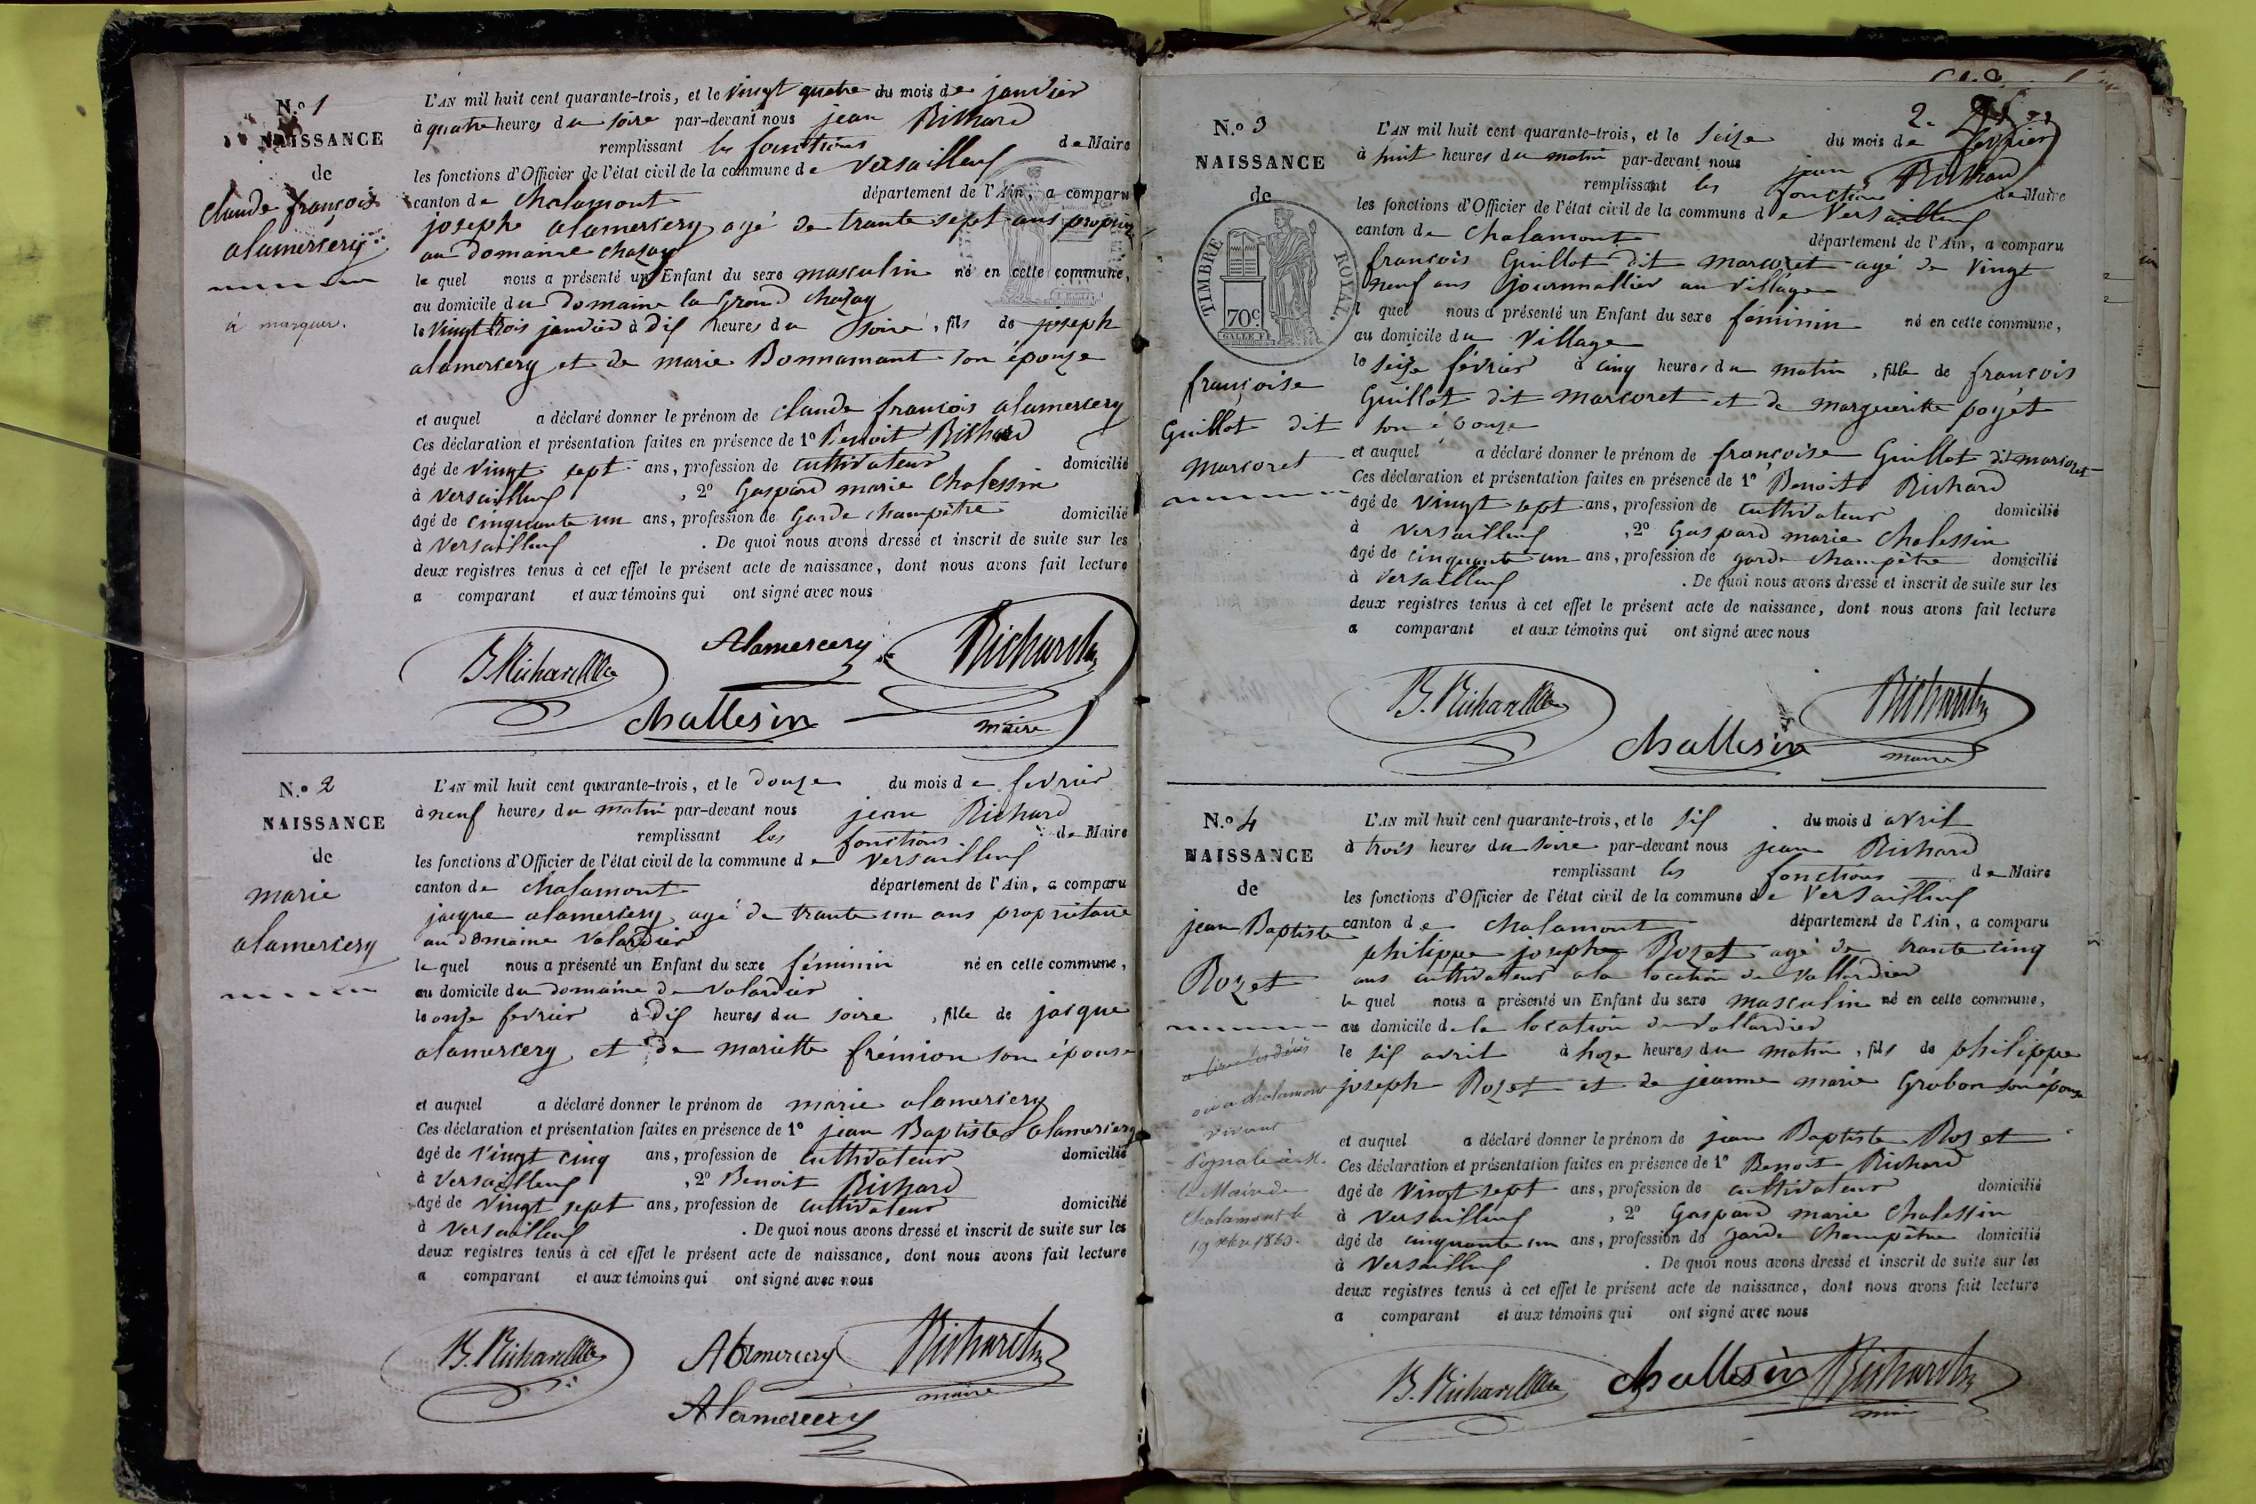 N.o 1
NAISSANCE
de
claude françois
alamercery
à marquer.
L'AN mil huit cent quarante-trois, et le vingt quatre du mois de janvier
à quatre heures du soire par-devant nous jean Richard
remplissant les fonctions de Maire
les fonctions d'Officier de l'état civil de la commune de Versailleux
canton de chalamont département de l'Ain, a comparu
josephe alamercery agé de trante sept ans propri
au domaine chazay
le quel nous a présenté un Enfant du sexe masculin né en cette commune,
au domicile du domaine la Grond chazay
le vingt trois janvier à dix heures du soire, fils de joseph
alamercery et de marie Bonnamant son épouze
et auquel a déclaré donner le prénom de claude francois alamercery
Ces déclaration et présentation faites en présence de 1º Benoit Richard
âgé de vingt sept ans, profession de cultivateur domicilié
à Versailleux, 2º Gaspard marie Chalessin
âgé de cinquante un ans, profession de Garde champêtre domicilié
à Versailleux. De quoi nous avons dressé et inscrit de suite sur les
deux registres tenus à cet effet le présent acte de naissance, dont nous avons fait lecture
a comparant et aux témoins qui ont signé avec nous
B. Richard Alamercery Richard
challesin maire
N.o 2
NAISSANCE
de
marie
alamercery
L'AN mil huit cent quarante-trois, et le douze du mois de fevrier
à neuf heures du matin par-devant nous jean Richard
remplissant les fonctions de Maire
les fonctions d'Officier de l'état civil de la commune de Versailleux
canton de chalamont département de l'Ain, a comparu
jacque alamercery agé de trante un ans propriétaire
au domaine valardier
le quel nous a présenté un Enfant du sexe féminin né en cette commune,
au domicile du domaine de valardier
le onze fevrier à dix heures du soire, fille de jacque
alamercery et de mariette frémion son épouse
et auquel a déclaré donner le prénom de marie alamercery
Ces déclaration et présentation faites en présence de 1º jean Baptiste alamercery
âgé de vingt cinq ans, profession de cultivateur domicilié
à Versailleux, 2º Benoit Richard
âgé de vingt sept ans, profession de cultivateur domicilié
à Versailleux. De quoi nous avons dressé et inscrit de suite sur les
deux registres tenus à cet effet le présent acte de naissance, dont nous avons fait lecture
a comparant et aux témoins qui ont signé avec nous
B. Richard Alamercery Richard
maire
Alamercery
2.
N.o 3
NAISSANCE
de
TIMBRE ROYAL.
70c.
françoise
Guillot dit
marcoret
L'AN mil huit cent quarante-trois, et le seize du mois de fevrier
à huit heures du matin par-devant nous jean Richard
remplissant les fonctions de Maire
les fonctions d'Officier de l'état civil de la commune de Versailleux
canton de chalamont département de l'Ain, a comparu
francois Guillot dit marcoret agé de vingt
neuf ans journnallier au village
l quel nous a présenté un Enfant du sexe féminin né en cette commune,
au domicile du village
le seize février à cinq heures du matin, fille de francois
Guillot dit marcoret et de marguerite poyét
son épouze
et auquel a déclaré donner le prénom de françoise Guillot dit marcoret
Ces déclaration et présentation faites en présence de 1º Benoit Richard
âgé de vingt sept ans, profession de cultivateur domicilié
à Versailleux, 2º Gaspard marie Chalessin
âgé de cinquante un ans, profession de garde champêtre domicilié
à Versailleux. De quoi nous avons dressé et inscrit de suite sur les
deux registres tenus à cet effet le présent acte de naissance, dont nous avons fait lecture
a comparant et aux témoins qui ont signé avec nous
B. Richard challesin Richard
maire
N.o 4
NAISSANCE
de
jean Baptiste
Rozet
vivant
Chalamont le
L'AN mil huit cent quarante-trois, et le six du mois d avril
à trois heures du soire par-devant nous jean Richard
remplissant les fonctions de Maire
les fonctions d'Officier de l'état civil de la commune de Versailleux
canton de chalamont département de l'Ain, a comparu
philippe josephe Rozet agé de trante cinq
ans cultivateur a la location de vallardier
le quel nous a présenté un Enfant du sexe masculin né en cette commune,
au domicile de la location de vallardier
le six avril à hoze heures du matin, fils de philippe
joseph Rozet et de jeanne marie Grobon son épouze
et auquel a déclaré donner le prénom de jean Baptiste Rozet
Ces déclaration et présentation faites en présence de 1º Benoit Richard
âgé de vingt sept ans, profession de cultivateur domicilié
à Versailleux, 2º Gaspard marie Chalessin
âgé de cinquante un ans, profession de garde champêtre domicilié
à Versailleux. De quoi nous avons dressé et inscrit de suite sur les
deux registres tenus à cet effet le présent acte de naissance, dont nous avons fait lecture
a comparant et aux témoins qui ont signé avec nous
B. Richard challesin Richard